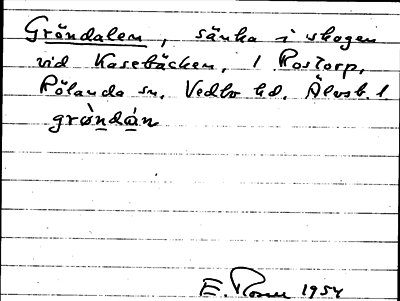 Gröndalen, sänka i skogen
vid Kasebäcken, 1 Rostorp,
Rölanda sn. Vedbo hd. Älvsb. l
grøndán
E. 1954